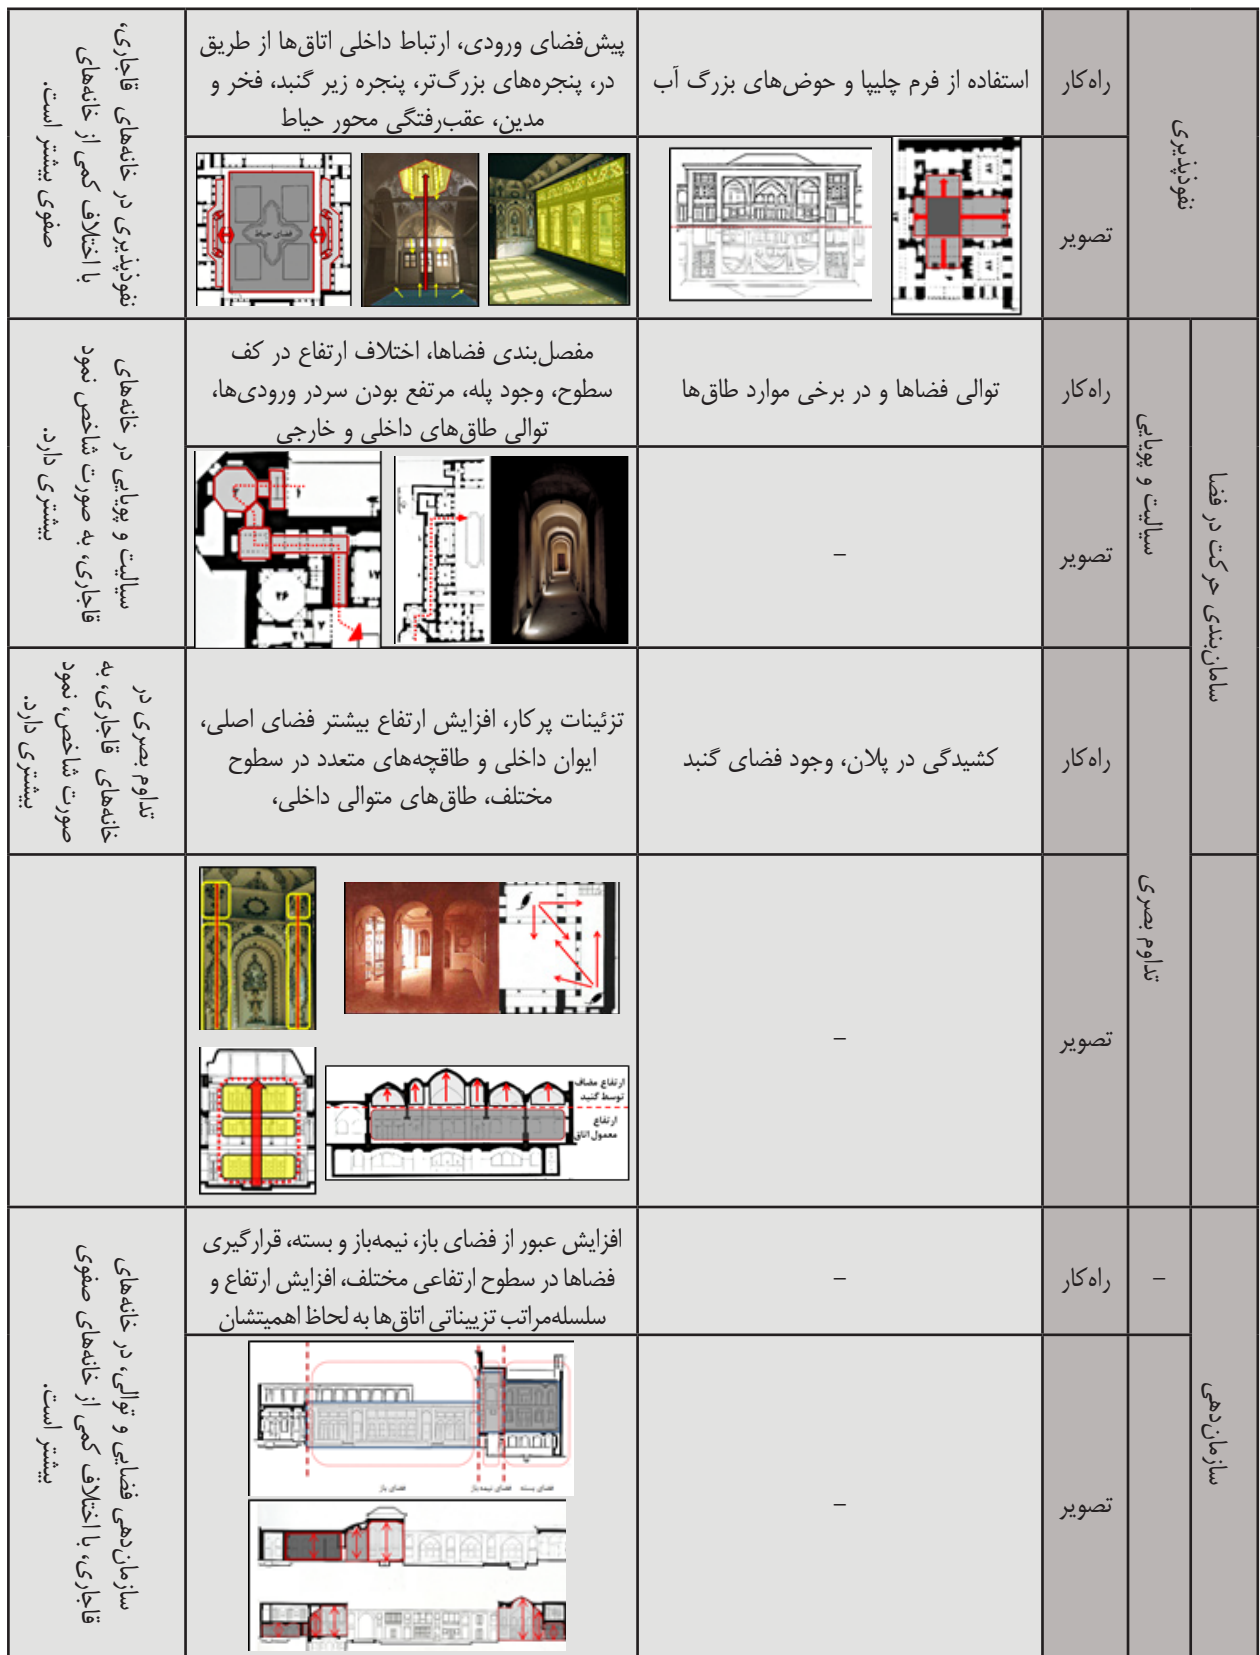 نفوذپذیری
راه‌کار
استفاده از فرم چلیپا و حوض‌های بزرگ آب
پیش‌فضای ورودی، ارتباط داخلی اتاق‌ها از طریق
در، پنجره‌های بزرگ‌تر، پنجره زیر گنبد، فخر و
مدین، عقب‌رفتگی محور حیاط
نفوذپذیری در خانه‌های قاجاری،
با اختلاف کمی از خانه‌های
صفوی بیشتر است.
تصویر
فضای حیاط
سامان‌بندی حرکت در فضا
سیالیت و پویایی
راه‌کار
توالی فضاها و در برخی موارد طاق‌ها
مفصل‌بندی فضاها، اختلاف ارتفاع در کف
سطوح، وجود پله، مرتفع بودن سردر ورودی‌ها،
توالی طاق‌های داخلی و خارجی
سیالیت و پویایی در خانه‌های
قاجاری، به صورت شاخص نمود
بیشتری دارد.
تصویر
–
۲۶
۱۷
۲۱
تداوم بصری
راه‌کار
کشیدگی در پلان، وجود فضای گنبد
تزئینات پرکار، افزایش ارتفاع بیشتر فضای اصلی،
ایوان داخلی و طاقچه‌های متعدد در سطوح
مختلف، طاق‌های متوالی داخلی،
تداوم بصری در
خانه‌های قاجاری، به
صورت شاخص، نمود
بیشتری دارد.
تصویر
–
ارتفاع مضاف
توسط گنبد
ارتفاع
معمول اتاق
سازمان‌دهی
–
راه‌کار
–
افزایش عبور از فضای باز، نیمه‌باز و بسته، قرارگیری
فضاها در سطوح ارتفاعی مختلف، افزایش ارتفاع و
سلسله‌مراتب تزییناتی اتاق‌ها به لحاظ اهمیتشان
سازمان‌دهی فضایی و توالی، در خانه‌های
قاجاری، با اختلاف کمی از خانه‌های صفوی
بیشتر است.
تصویر
–
فضای بسته فضای نیمه باز فضای باز